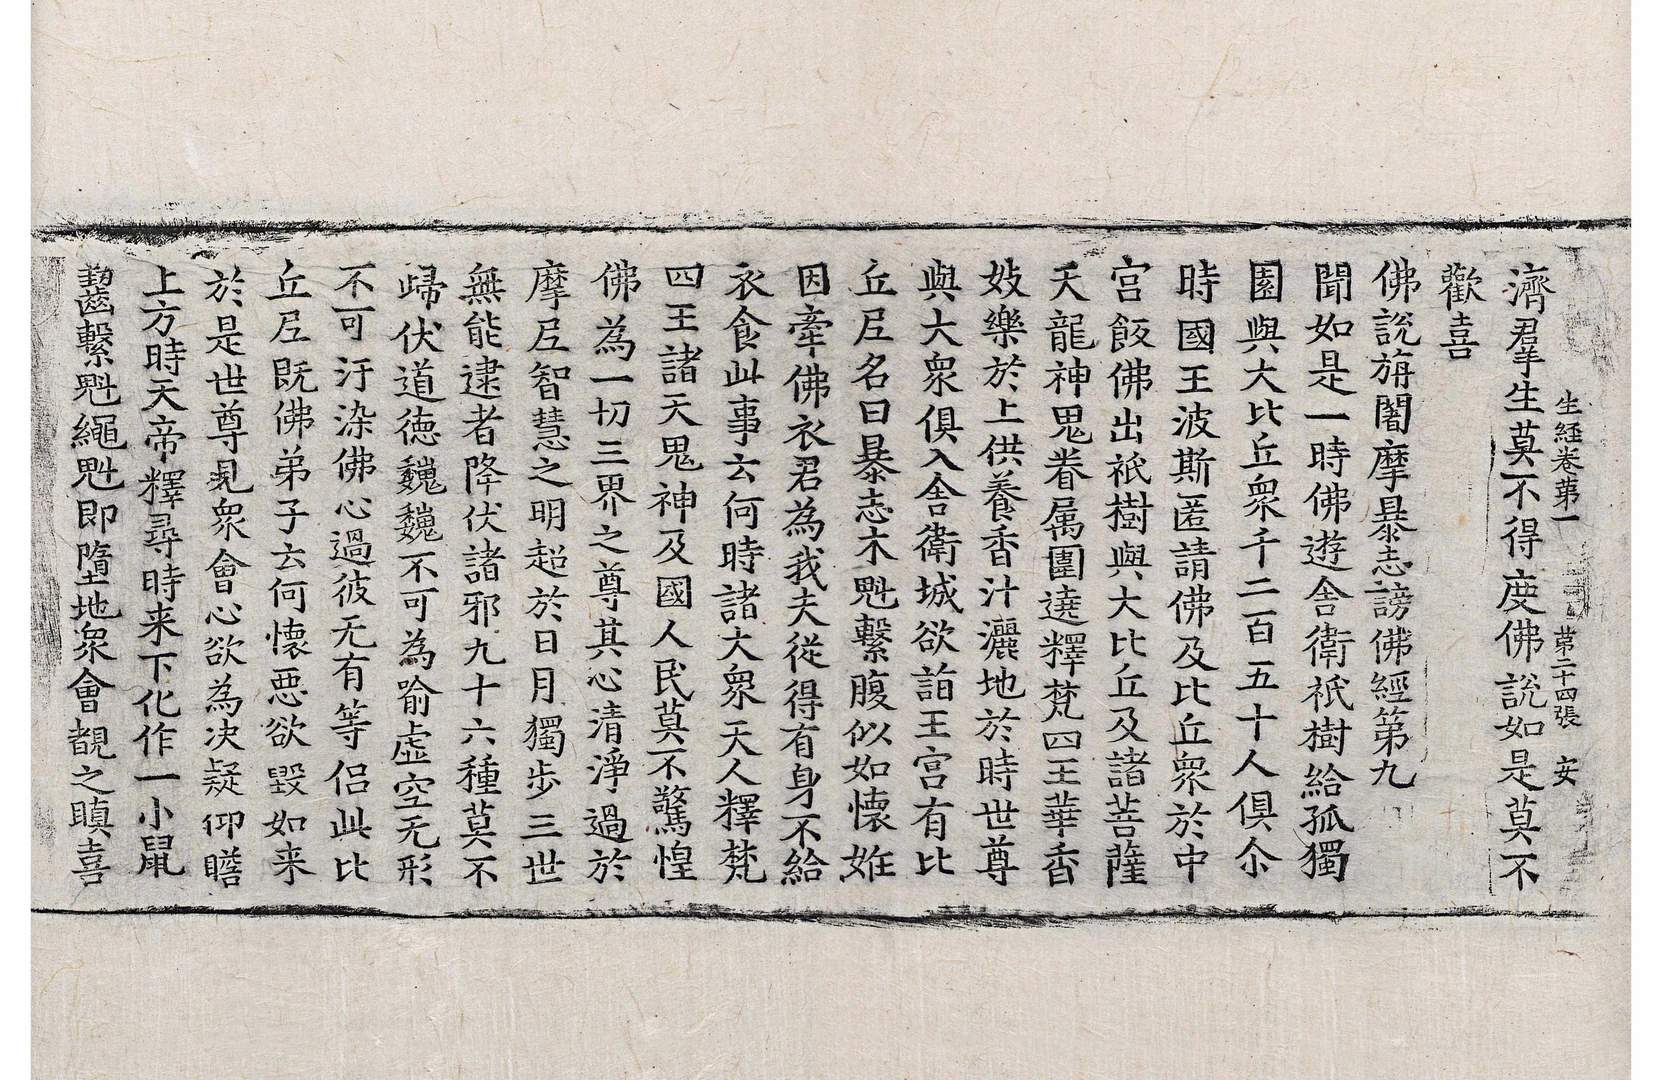 生経卷苐一 苐二十四張 安
濟羣生莫不得度佛說如是莫不
歡喜
佛說旃闍摩暴志謗佛經第九
聞如是一時佛遊舍衛祇樹給孤獨
園與大比丘衆千二百五十人俱尒
時國王波斯匿請佛及比丘衆於中
宮飯佛出祇樹與大比丘及諸菩薩
天龍神鬼眷属圍遶釋梵四王華香
妓樂於上供養香汁灑地於時世尊
與大衆俱入舍衛城欲詣王宮有比
丘𡰱名曰暴志木魁繫腹似如懷妊
因牽佛衣君為我夫從得有身不給
衣食此事云何時諸大衆天人釋梵
四王諸天鬼神及國人民莫不驚惶
佛為一切三界之尊其心清淨過於
摩𡰱智慧之明超於日月獨步三世
無能逮者降伏諸邪九十六種莫不
歸伏道德巍巍不可為喻虛空无形
不可汙染佛心過彼无有等侶此比
丘𡰱既佛弟子云何懷惡欲毀如来
於是世尊見衆會心欲為决疑仰瞻
上方時天帝釋尋時来下化作一小鼠
齧繫魁繩魁即墮地衆會覩之瞋喜